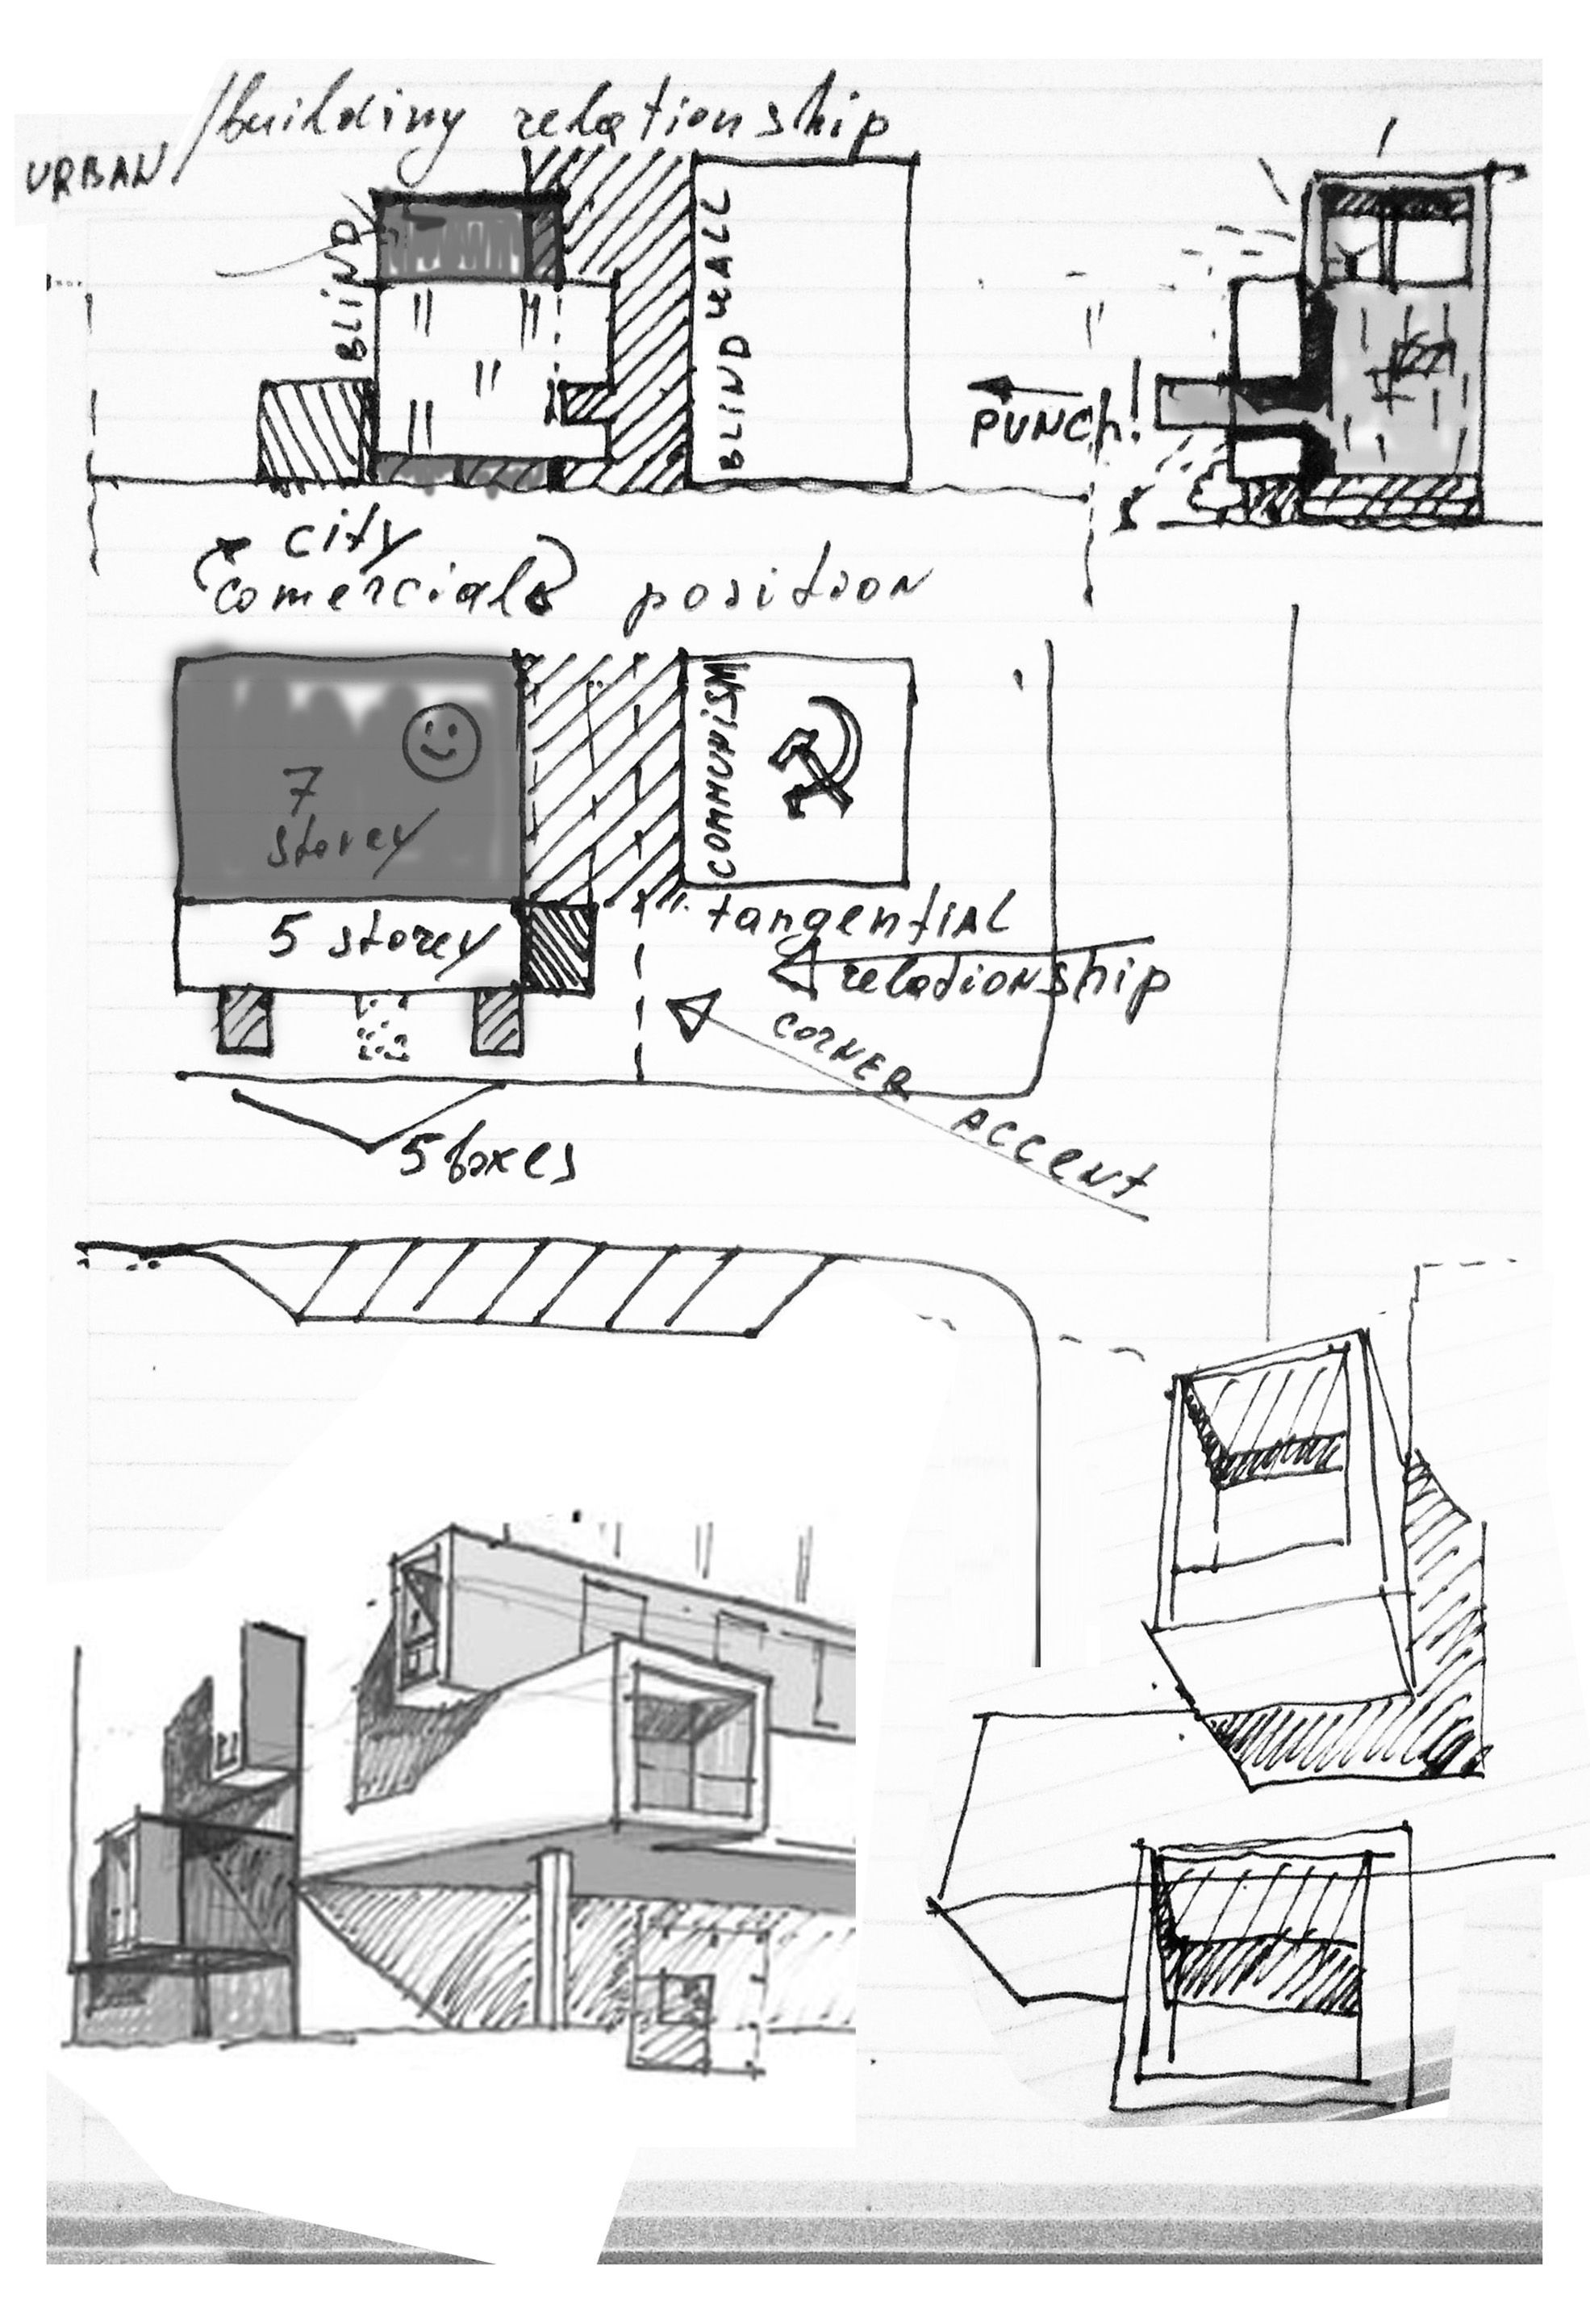 URBAN /building relationship
BLIND
BLIND WALL
PUNCH!
city
comercial position
COMMUNISM
7
storey
5 storey
tangential
relationship
CORNER ACCENT
5 boxes